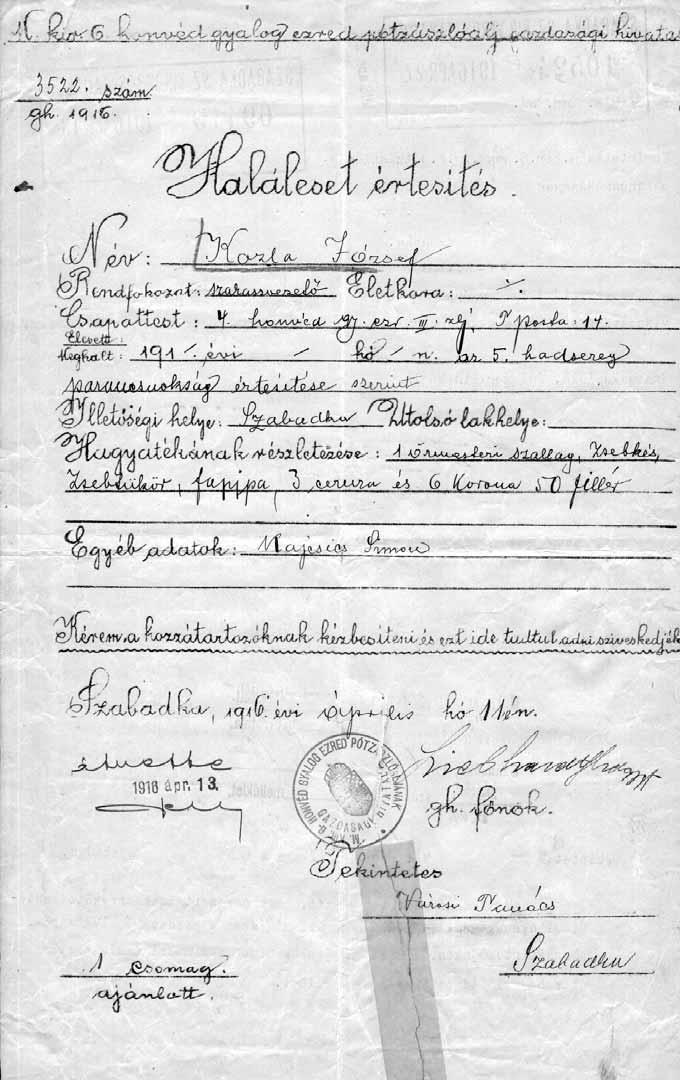 M. kir. 6. honvéd gyalog ezred pótzászlóalj gazdasági hivata
3522. szám.
gh. 1916.
Haláleset értesités.
Név: Kozla József
Rendfokozat: szakaszvezető Életkora: ./.
Csapattest: 4. honvéd gy. ezr. III. zlj, T. posta: 14.
Elesett:
Meghalt: 191/. évi - hó /- n. az 5. hadsereg
parancsnokság értesitése szerint
Illetőségi helye: Szabadka Utolsó lakhelye:
Hagyatékának részletezése: 1 őrmesteri szallag, Zsebkés,
Zsebtükör, fapipa, 3 ceruza és 6 Korona 50 fillér
Egyéb adatok: Majcsics Simon
Kérem a hozzátartozóknak kézbesiteni és ezt ide tudtul adni sziveskedjék
Szabadka, 1916. évi április hó 11én.
átvette
1916 ápr. 13.
M. KIR. 6. HONVÉD GYALOG EZRED PÓTZÁSZLÓALJÁNAK
GAZDASÁGI HIVATALA
gh. főnök.
Tekintetes
Városi Tanács
Szabadka
1 csomag.
ajánlott.